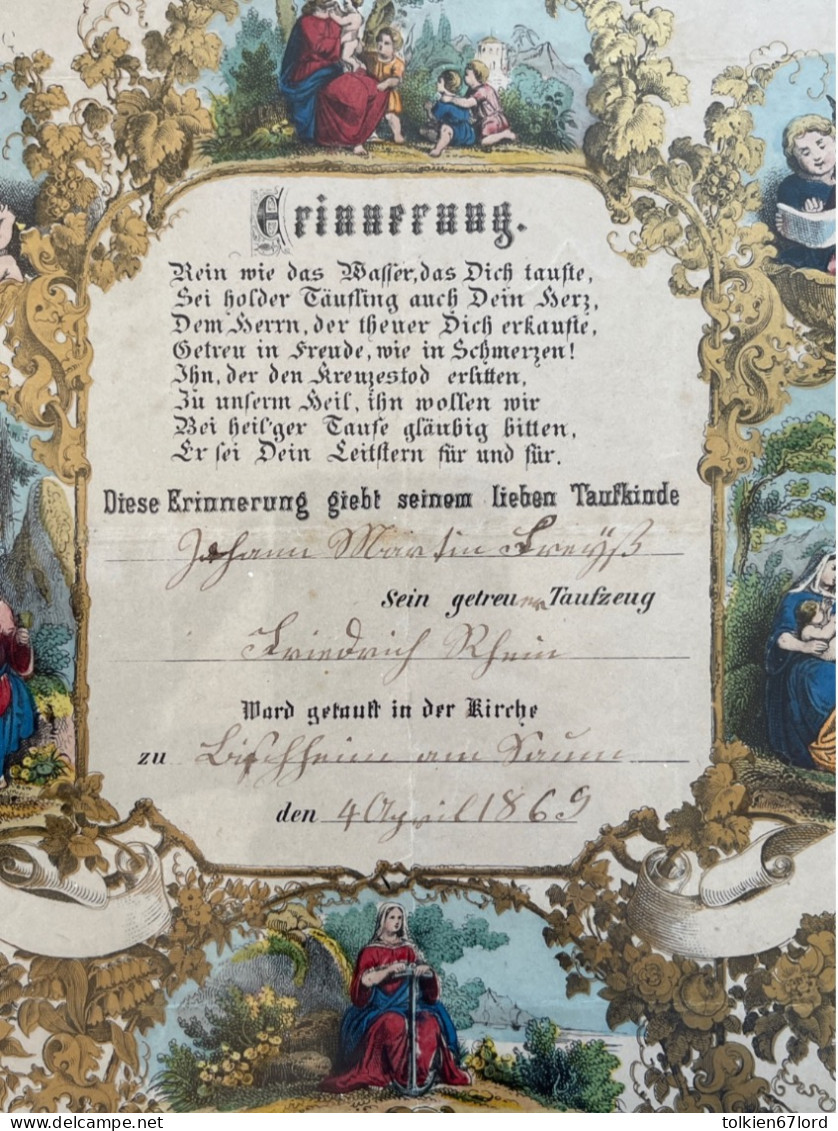 Erinnerung.
Rein wie das Wasser, das Dich taufte,
Sei holder Täufling auch Dein Herz,
Dem Herrn, der theuer Dich erkaufte,
Getreu in Freude, wie in Schmerzen!
Ihn, der den Kreuzestod erlitten,
Zu unserm Heil, ihn wollen wir
Bei heil'ger Taufe gläubig bitten,
Er sei Dein Leitstern für und für.
Diese Erinnerung giebt seinem lieben Taufkinde
Johann Martin Freyß
Sein getreuer Taufzeug
Friedrich Rhein
Ward getauft in der Kirche
zu Bischheim am Saum
den 4 April 1869
tolkien67lord